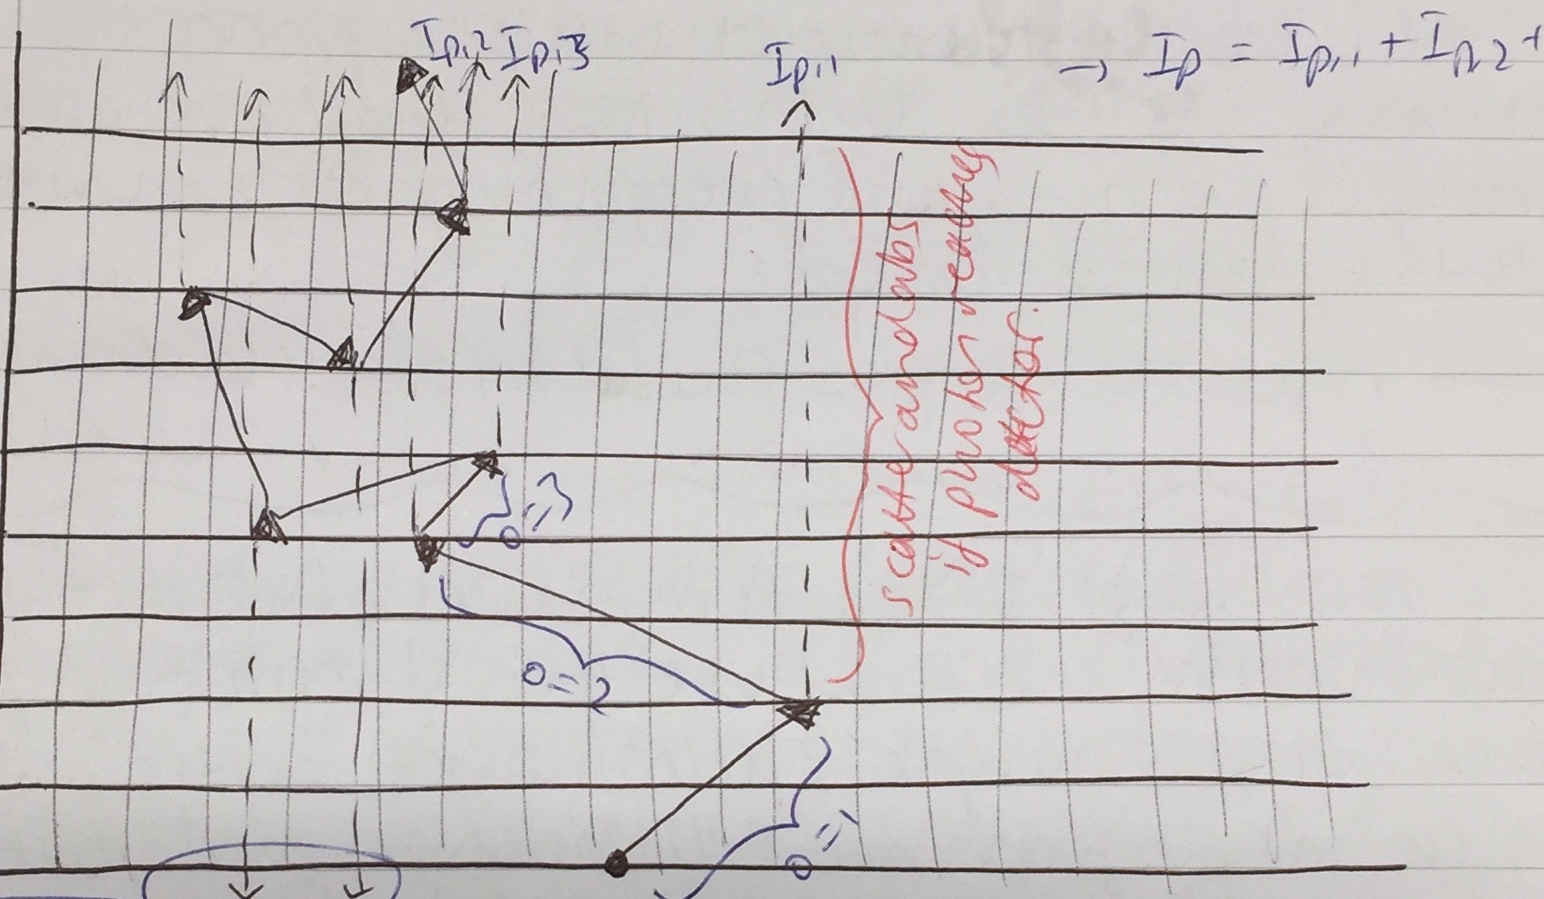 I_{p,2} I_{p,3}
I_{p,1}
→ I_p = I_{p,1} + I_{p,2} +
scatter and abs
if photon reaches
detector.
o=3
o=2
o=1